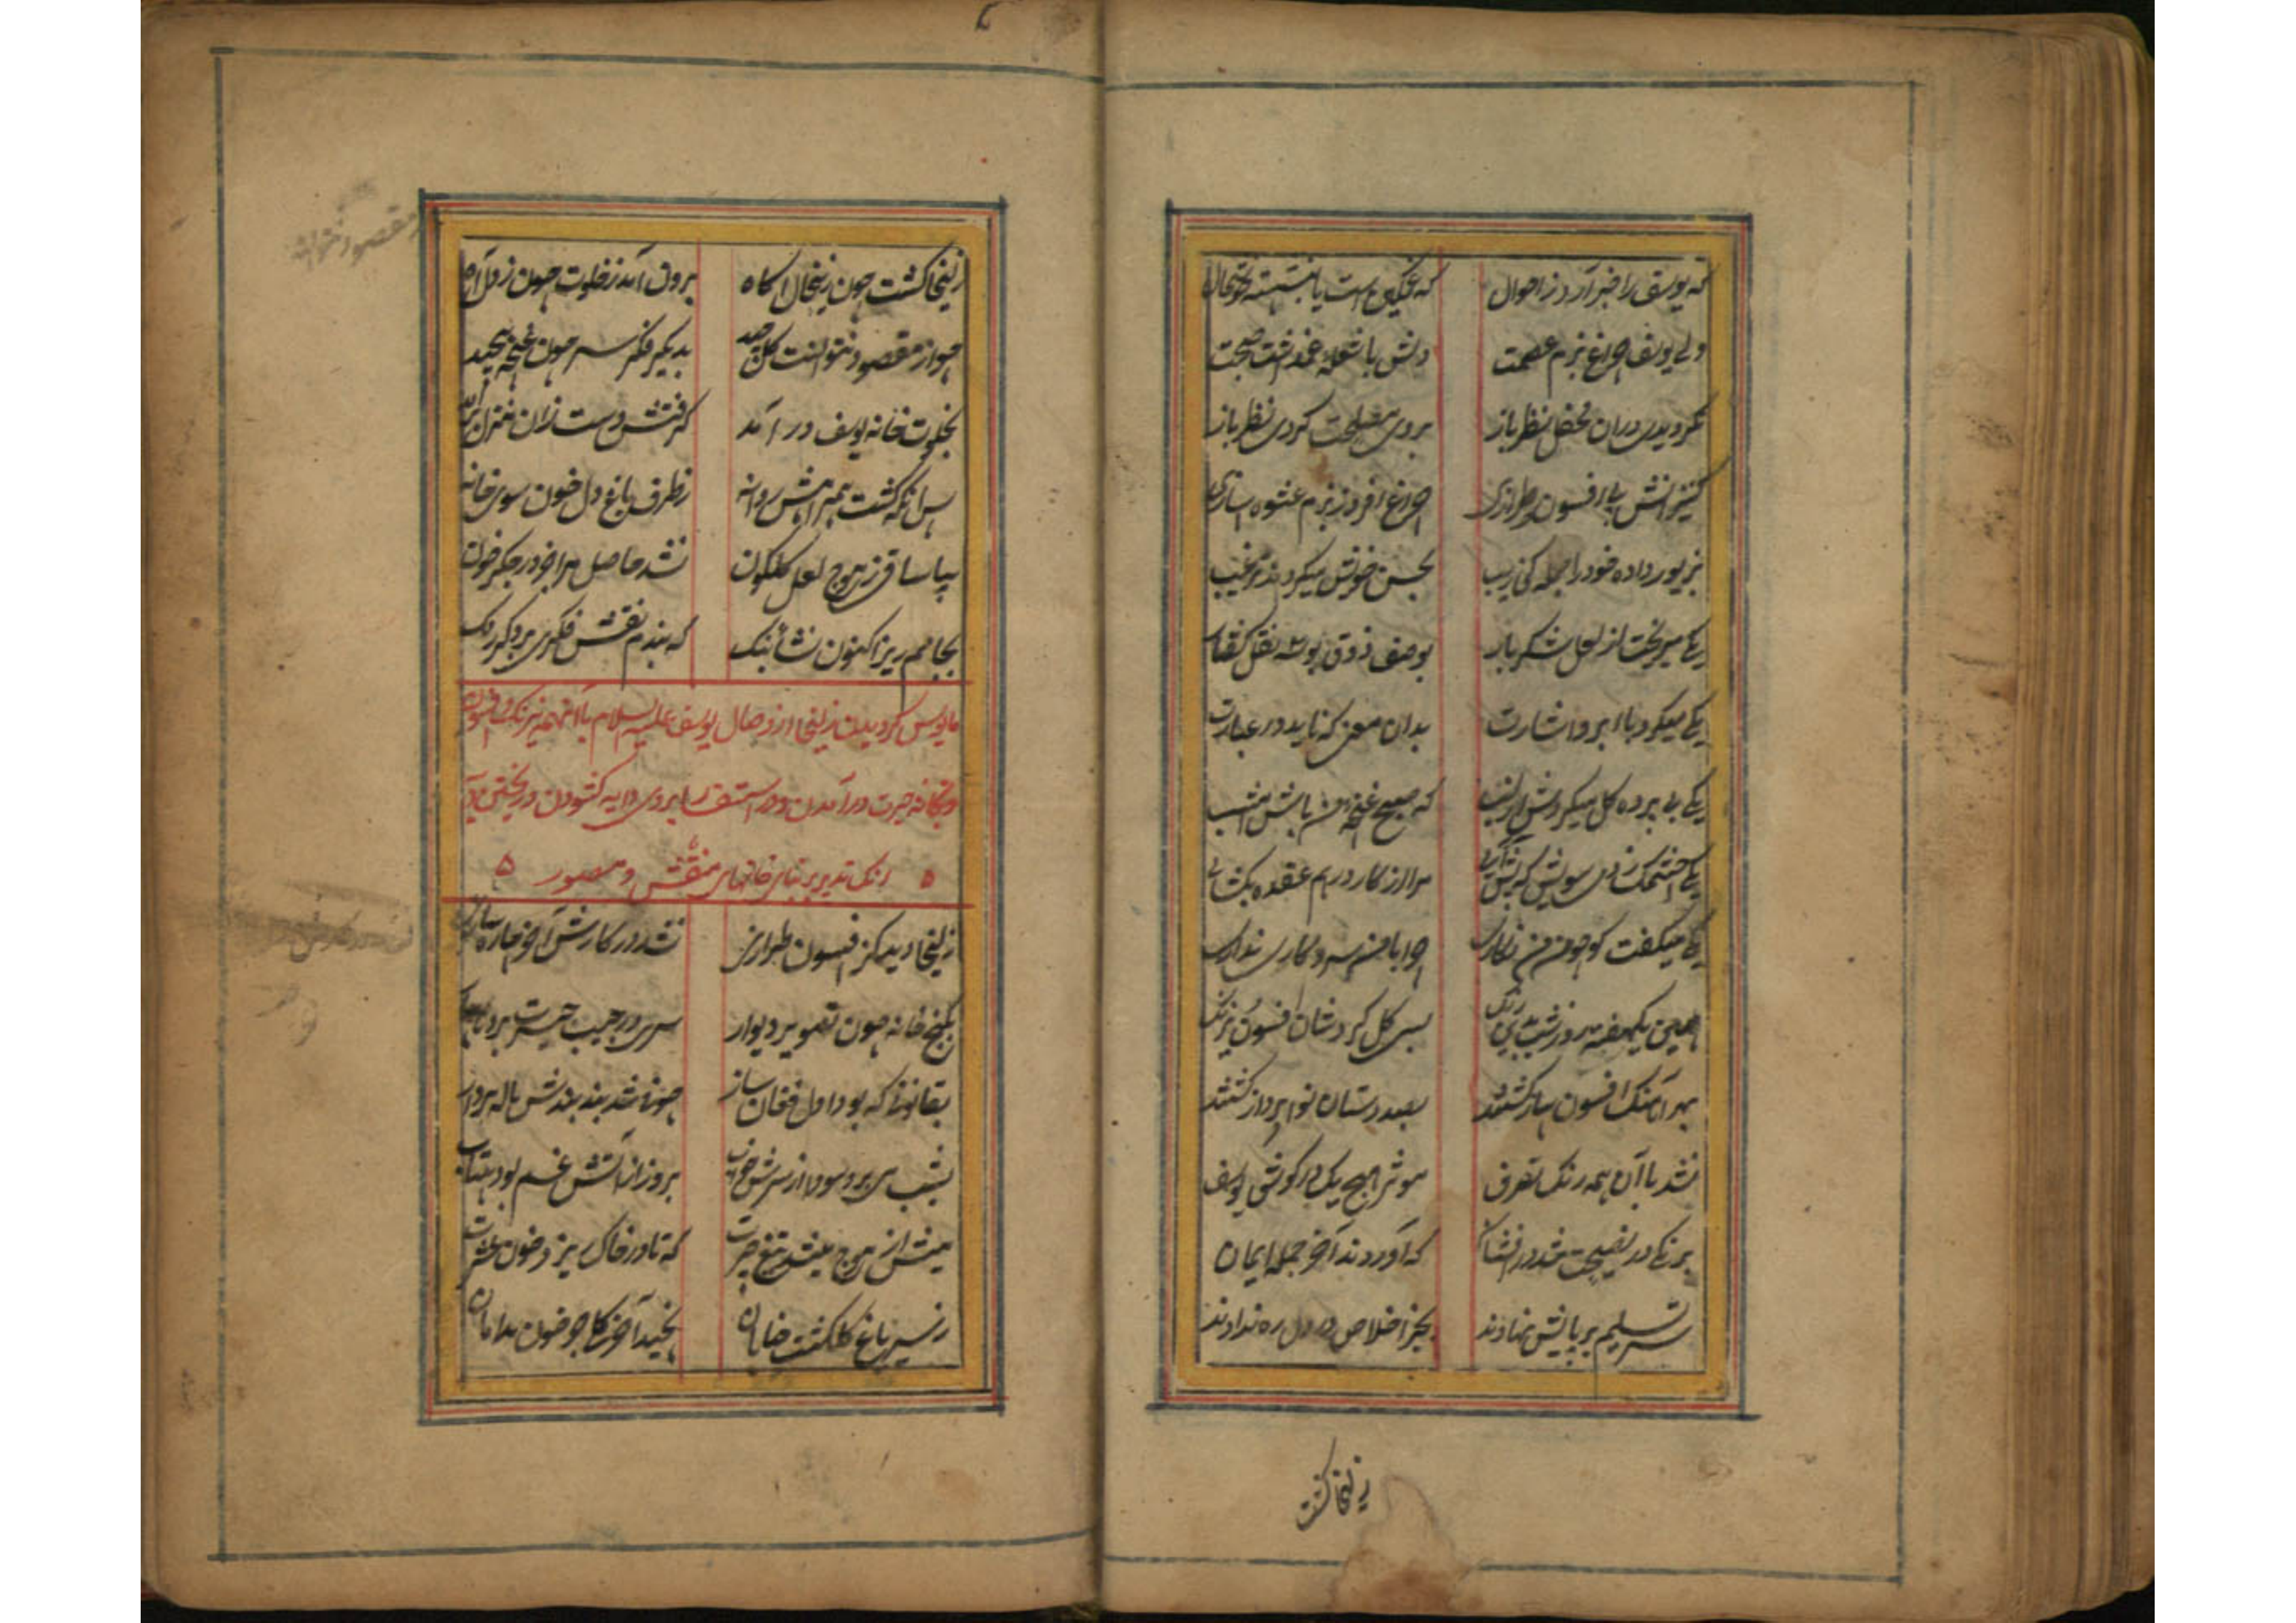 که یوسف را خبر آرد ز احوال که غمگین است یا بنشسته خوشحال
ولے یوسف چراغ بزم عصمت دلش با شعلهٔ غم داشت صحبت
نگردیدی دران محفل نظر باز بروی مصلحت کردی نظر باز
کنیزانش بے افسون طرازی چراغ افروز بزم عشوه سازی
بزیور داده خود را جمله کی زیب بحسن خویش میکردند ترغیب
یکے میریخت از لعل شکر بار بوصف ذوق بوسه نقل گفتار
یکے میکرد با ابرو اشارت بدان معنی که ناید در عبارت
یکے بے پرده گل میکردش از لب که صبح غنچهٔ من باش امشب
یکے چشمک زدی سویش که پیش آی مرا از کار درهم عقده بکشای
یکے میگفت کو چون من نگاری چرا با من سر و کاری نداری
همین یکهفته روز و شب بدین رنگ بسی گل کردشان افسون و نیرنگ
بهر آهنگ افسون ساز گشتند بصد دستان نوا پرداز گشتند
نشد با آن همه رنگ تصرف موثر هیچ یک در گوش یوسف
برنگے در نصیحت شد در افشان که آوردند آخر جمله ایمان
سر تسلیم بر پایش نهادند بجز اخلاص در دل ره ندادند
زلیخا گشت
زلیخا گشت چون زینحال آگاه برون آمد ز خلوت چون ز دل آه
چو از مقصود نتوانست گل چید بدیگر فکر سر چون غنچه پیچید
بخلوت خانه یوسف در آمد گرفتش دست زان منزل بر آمد
پس آنکه گشت همراهش روانه ز طرف باغ دل خون سوی خانه
بیا ساقی ز موج لعل گلگون نشد حاصل مرا جز در جگر خون
بجامم ریز اکنون نشأ بنگ که بندم نقش فکری بر دگر رنگ
مایوس گردیدن زلیخا از وصال یوسف علیه السلام با آنهمه نیرنگ و افسون
و بخانه حیرت در آمدن و در استفسار بروی دایه کشودن و ریختن
رنگ تدبیر بنای خانهای منقش و مصور
زلیخا دید کز افسون طرازی نشد در کارش آخر چاره سازی
بکنج خانه چون تصویر دیوار سری در جیب حیرت برد ناچار
بقانونی که بود اول فغان ساز چو نی شد بند بندش ناله پرداز
بشب می برد سودا از سرش خواب بروز از آتش غم بود بیتاب
میش از موج میشد تیغ حیرت که تا در خاک ریزد خون عشرت
ز سیر باغ گلگشت خیابان بچید آخر گل جو خون بدامان